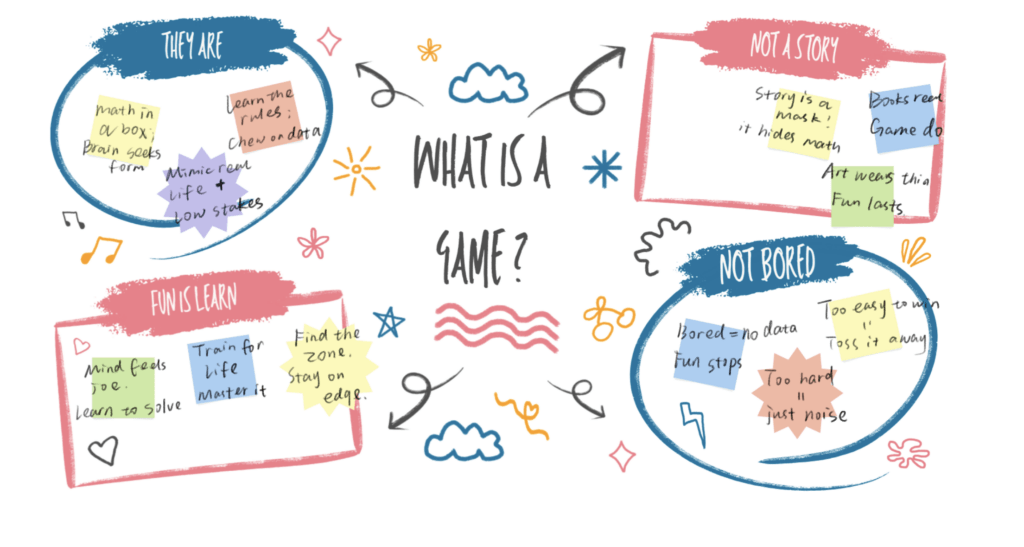 THEY ARE
math in
a box;
Brain seeks
form
Learn the
rules;
Chew on data
Mimic real
life +
Low stakes
WHAT IS A
GAME?
NOT A STORY
Story is a
mask!
it hides math
Books read
Game do
Art wears thin
Fun lasts
FUN IS LEARN
Mind feels
joe.
Learn to solve
Train for
Life
Master it
Find the
zone.
Stay on
edge.
NOT BORED
Bored = no data
Fun stops
Too easy to win
=
Toss it away
Too hard
=
just noise